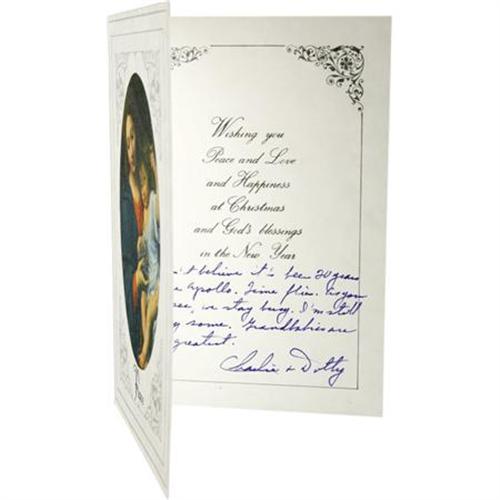 Wishing you
Peace and Love
and Happiness
at Christmas
and God's blessings
in the New Year
't believe it's been 20 years
Apollo. Time flies. As you
we stay busy. I'm still
some. Grandbabies are
greatest.
Charlie & Dotty